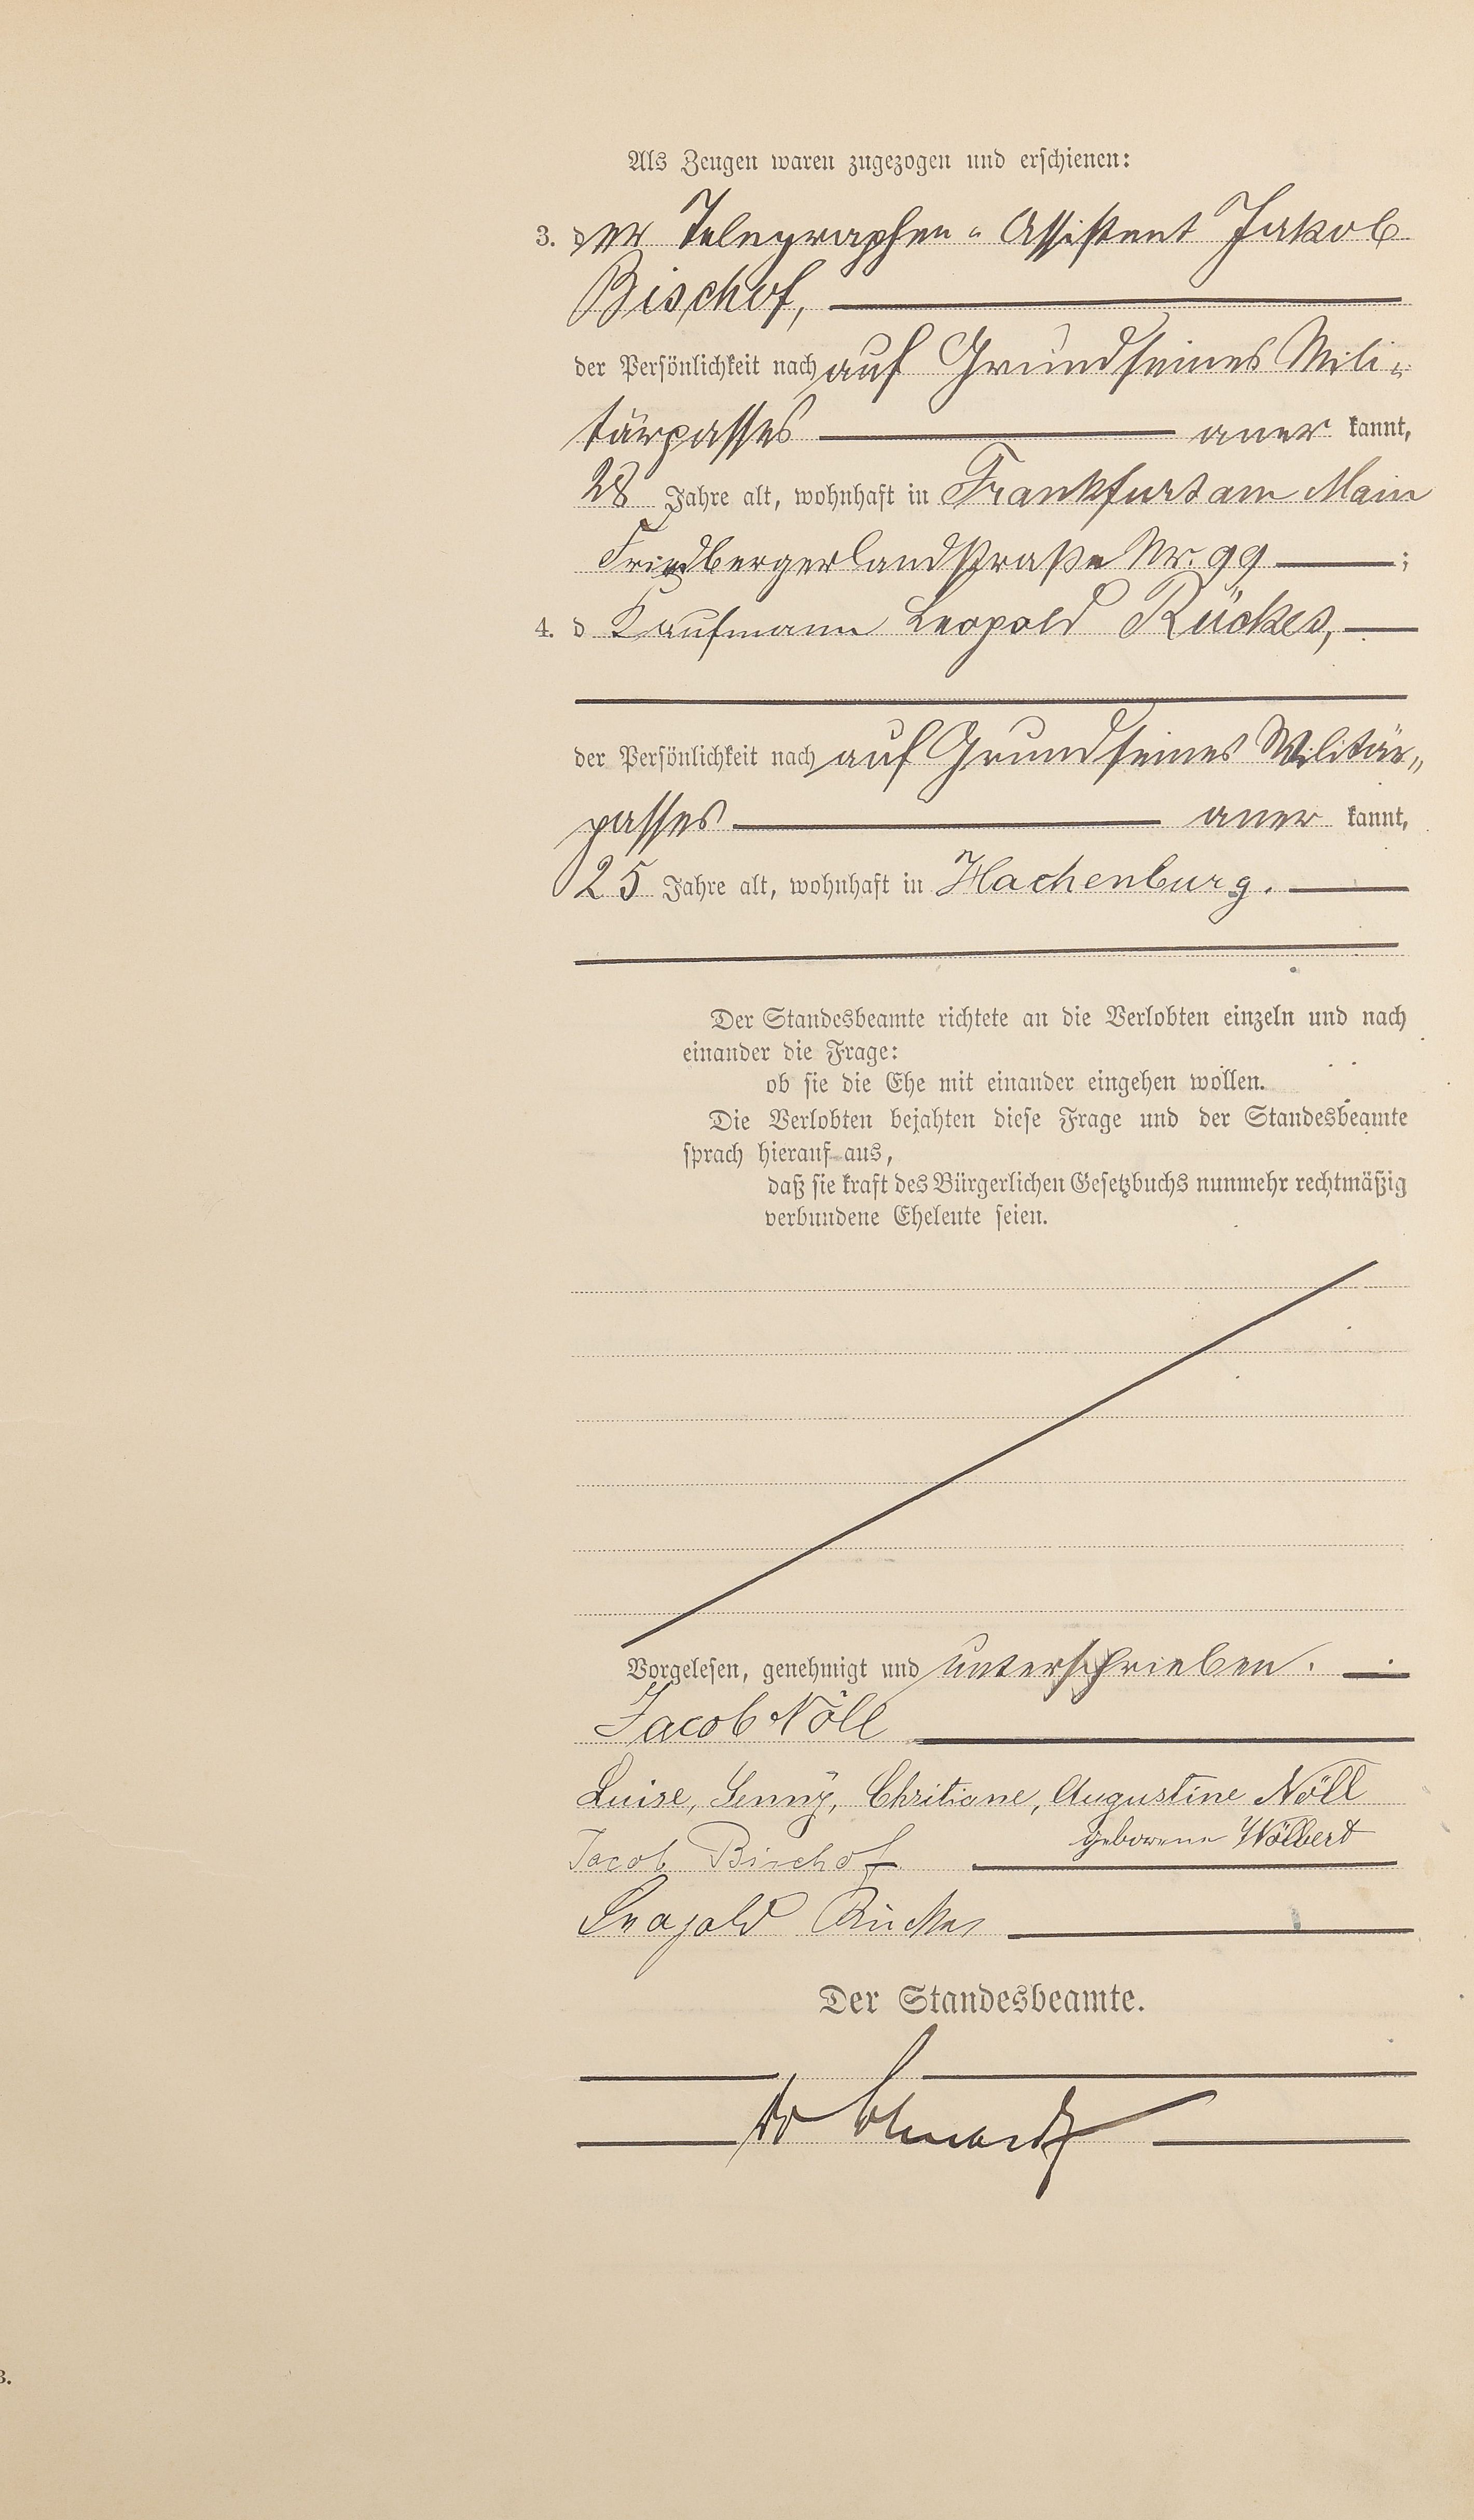 Als Zeugen waren zugezogen und erschienen:
3. der Telegraphen-Assistent Jakob
Bischof,
der Persönlichkeit nach auf Grund seines Mili-
tärpasses aner kannt,
28 Jahre alt, wohnhaft in Frankfurt am Main
Friedbergerlandstraße Nr. 99 ;
4. d Kaufmann Leopold Rückes,
der Persönlichkeit nach auf Grund seines Militär-
passes aner kannt,
25 Jahre alt, wohnhaft in Hachenburg.
Der Standesbeamte richtete an die Verlobten einzeln und nach
einander die Frage:
ob sie die Ehe mit einander eingehen wollen.
Die Verlobten bejahten diese Frage und der Standesbeamte
sprach hierauf aus,
daß sie kraft des Bürgerlichen Gesetzbuchs nunmehr rechtmäßig
verbundene Eheleute seien.
Vorgelesen, genehmigt und unterschrieben.
Jacob Nöll
Luise, Jenny, Chritiane, Augustine Nöll
geborene Wölbert
Jacob Bischof
Leopold Rückes
Der Standesbeamte.